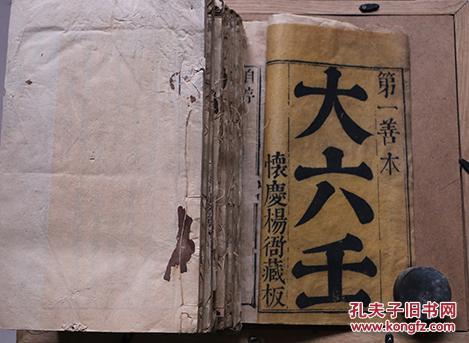 第一善本
大六壬
懷慶楊衙藏板
孔夫子旧书网
www.kongfz.com